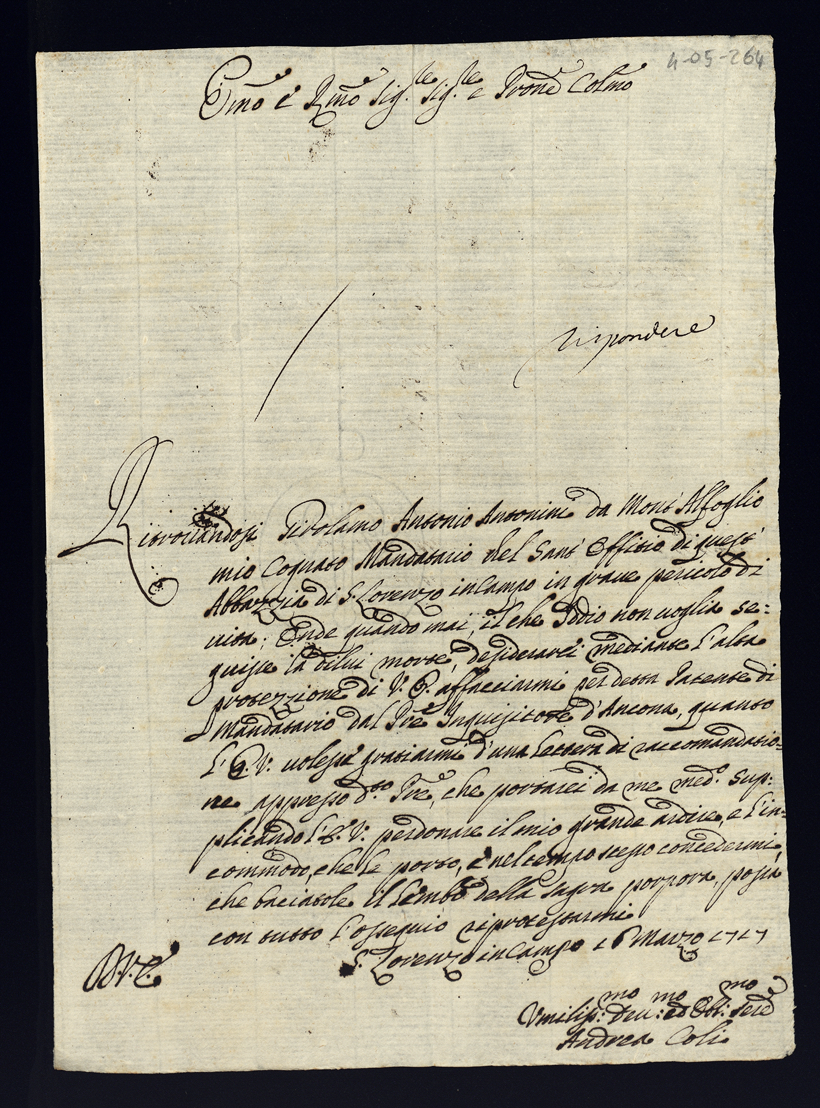 4-05-264
Emõ e Rmõ Sig.re Sig.re e Prone Colmõ
rispondere
Ritrovandosi Girolamo Antonio Antonini da Mont'Alfoglio
mio Cognato Mandatario del Sant'Offitio di quest'
Abbazzia di S. Lorenzo in Campo in grave pericolo di
vita; Onde quando mai, il che Iddio non voglia se=
guisse la di lui morte, desiderarei mediante l'alta
protezzione di V. E. affacciarmi per detta Patente di
Mandatario dal Pre Inquisitore d'Ancona, quanto
l'E. V. volesse gratiarmi d'una lettera di raccomandatio=
ne appresso d.to Pre, che portarei da me med.o Sup=
plicando l'E. V. perdonare il mio grande ardire, e l'in=
commodo, che le porto, e nel tempo stesso concedermi,
che baciatole il lembo della sagra porpora, possa
con tutto l'ossequio riprotestarmi
D.V.E.
S. Lorenzo in Campo 16 Marzo 1717
Umiliss.mo Dev.mo ed Obl.mo Sere
Andrea Coli